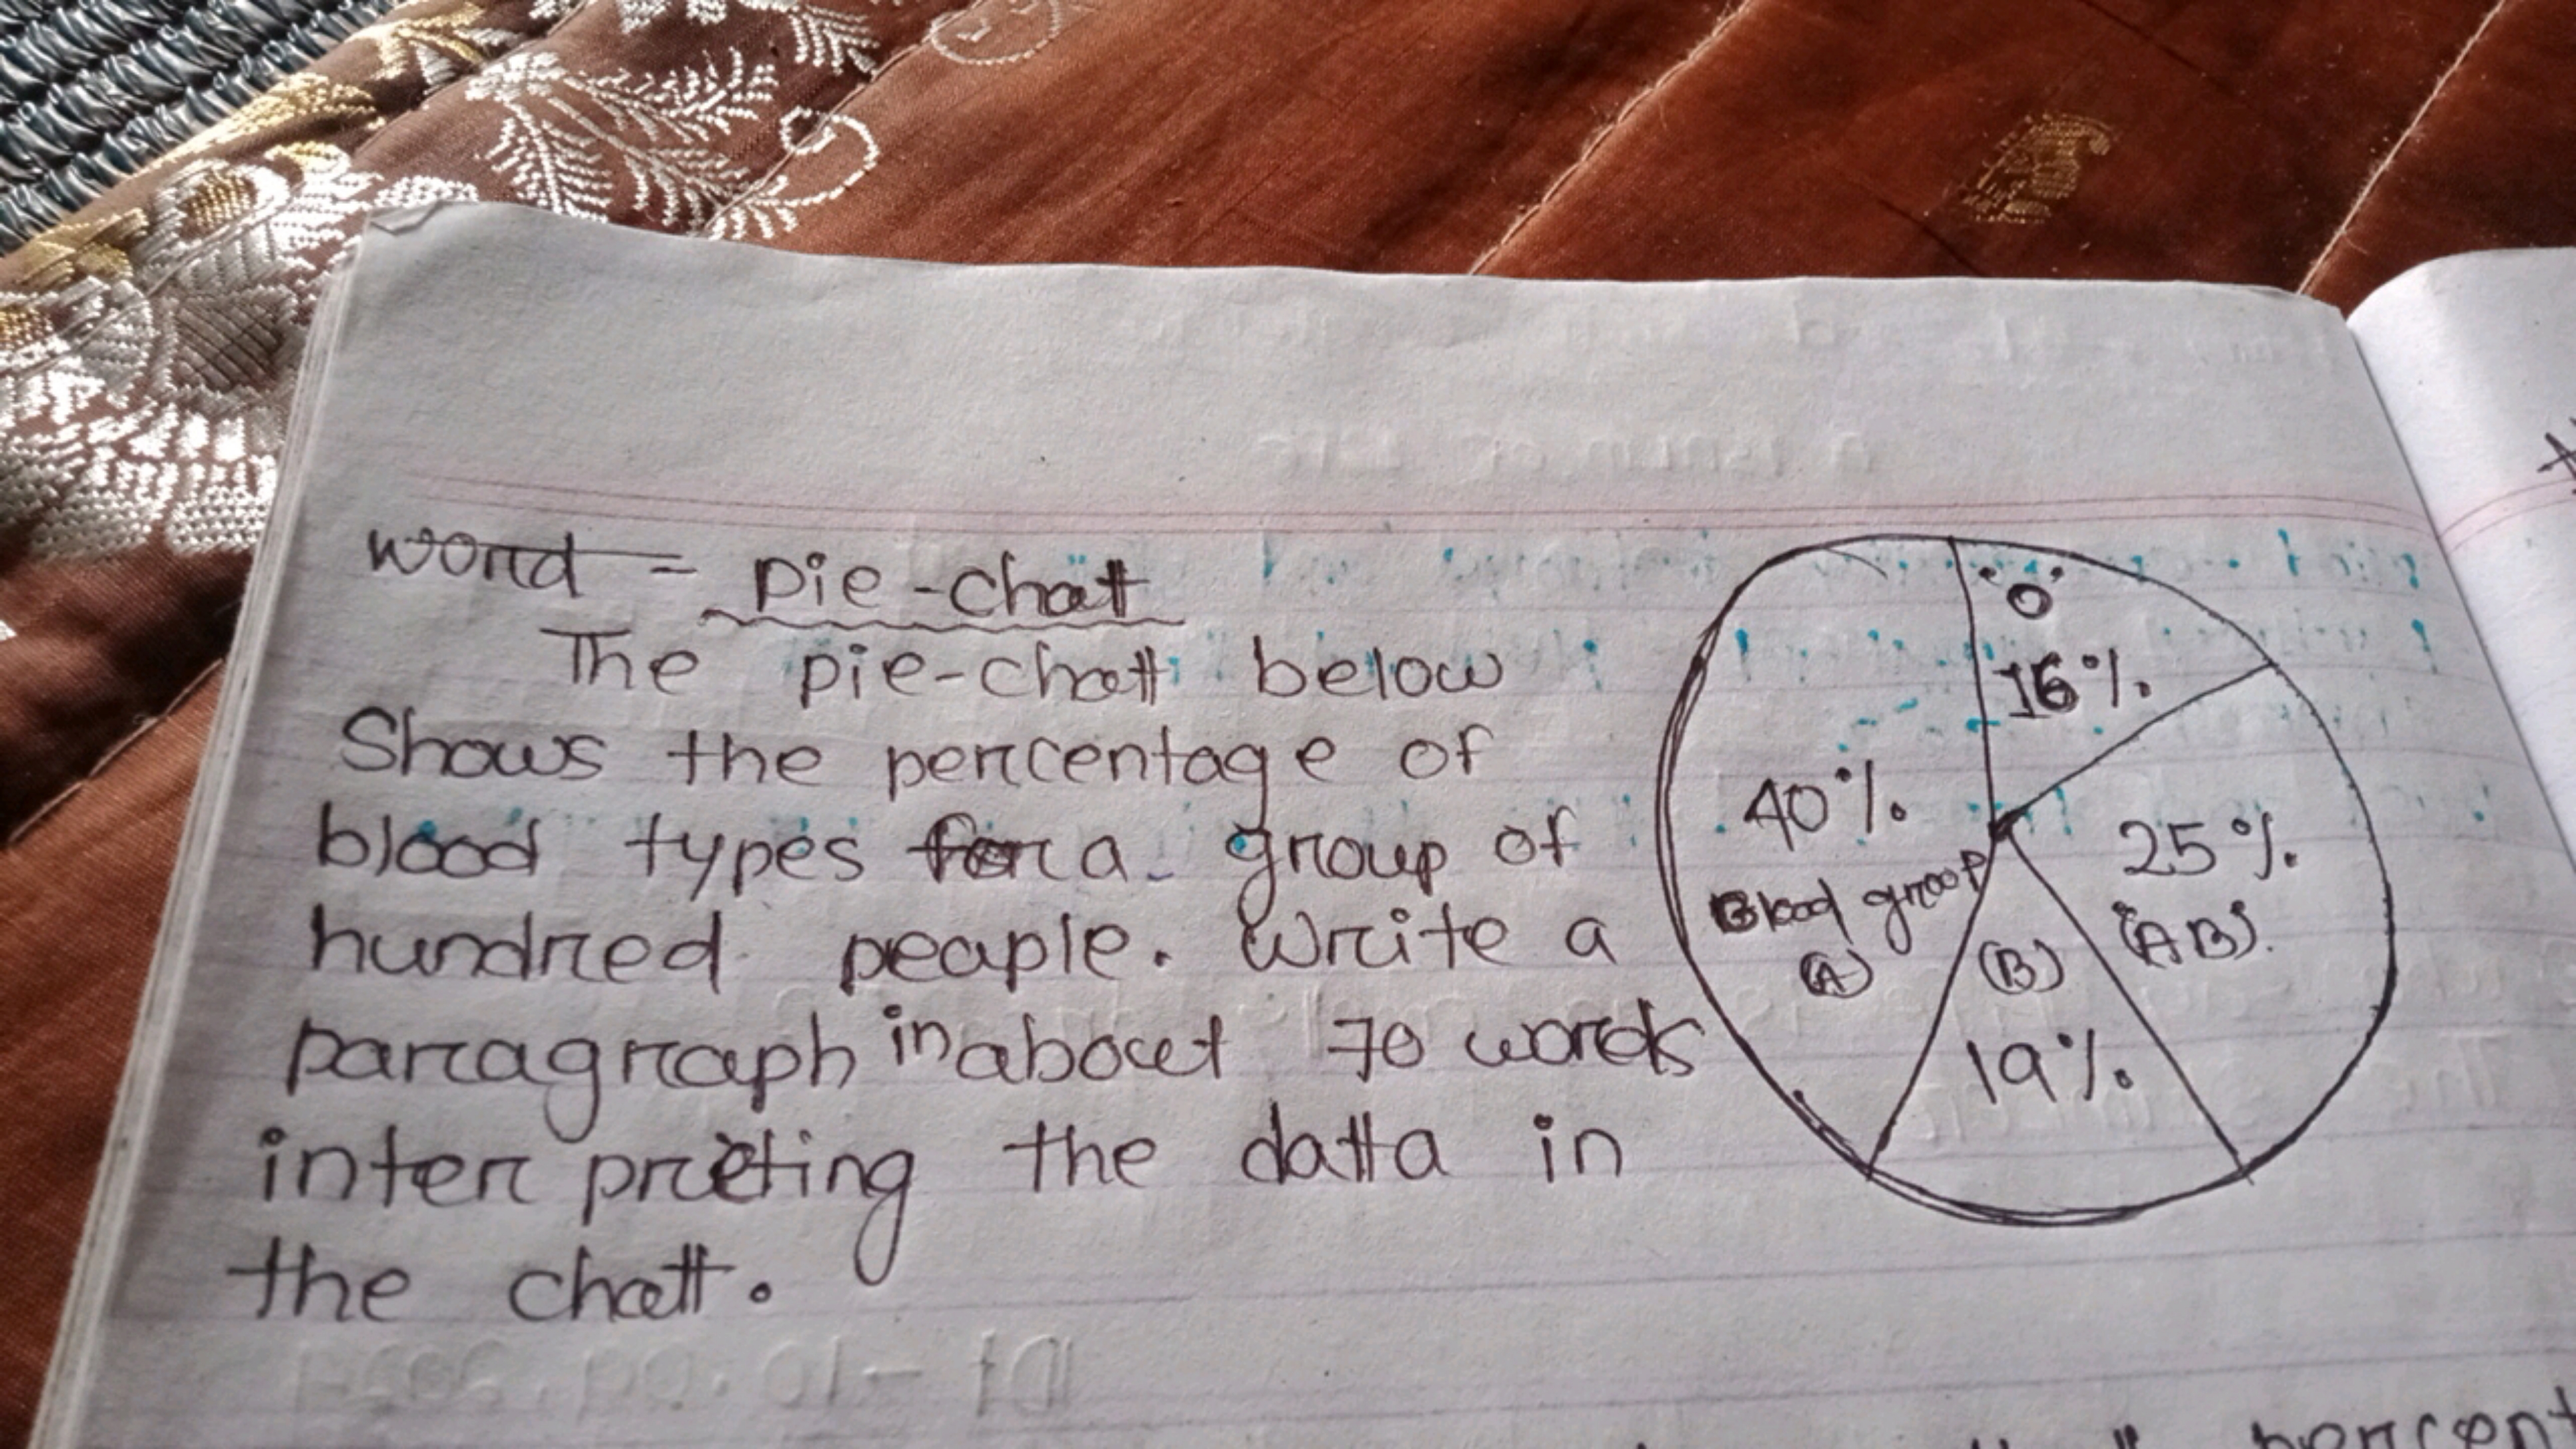 word = pie-chatt
The pie-chatt below
Shows the percentage of
blood types for a group of
hundred peaple. Write a
paragraph in about 70 words
inter preting the datta in
the chatt.
"O"
16%
40%
Blood groop
(A)
25%
"AB"
(B)
19%